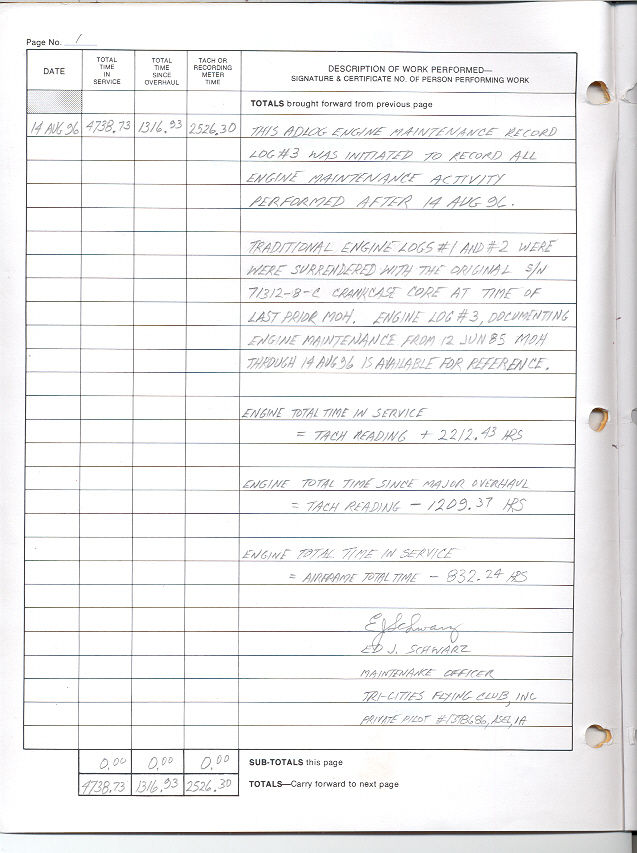 Page No. 1
DATE
TOTAL TIME IN SERVICE
TOTAL TIME SINCE OVERHAUL
TACH OR RECORDING METER TIME
DESCRIPTION OF WORK PERFORMED—
SIGNATURE & CERTIFICATE NO. OF PERSON PERFORMING WORK
TOTALS brought forward from previous page
14 AUG 96 4738.73 1316.93 2526.30 THIS ADLOG ENGINE MAINTENANCE RECORD
LOG #3 WAS INITIATED TO RECORD ALL
ENGINE MAINTENANCE ACTIVITY
PERFORMED AFTER 14 AUG 96.
TRADITIONAL ENGINE LOGS #1 AND #2 WERE
WERE SURRENDERED WITH THE ORIGINAL S/N
71312-8-C CRANKCASE CORE AT TIME OF
LAST PRIOR MOH. ENGINE LOG #3, DOCUMENTING
ENGINE MAINTENANCE FROM 12 JUN 85 MOH
THROUGH 14 AUG 96 IS AVAILABLE FOR REFERENCE.
ENGINE TOTAL TIME IN SERVICE
= TACH READING + 2212.43 HRS
ENGINE TOTAL TIME SINCE MAJOR OVERHAUL
= TACH READING - 1209.37 HRS
ENGINE TOTAL TIME IN SERVICE
= AIRFRAME TOTAL TIME - 832.24 HRS
EJ Schwarz
ED J. SCHWARZ
MAINTENANCE OFFICER
TRI-CITIES FLYING CLUB, INC
PRIVATE PILOT #1378686, ASEL, IA
0.00 0.00 0.00 SUB-TOTALS this page
4738.73 1316.93 2526.30 TOTALS—Carry forward to next page